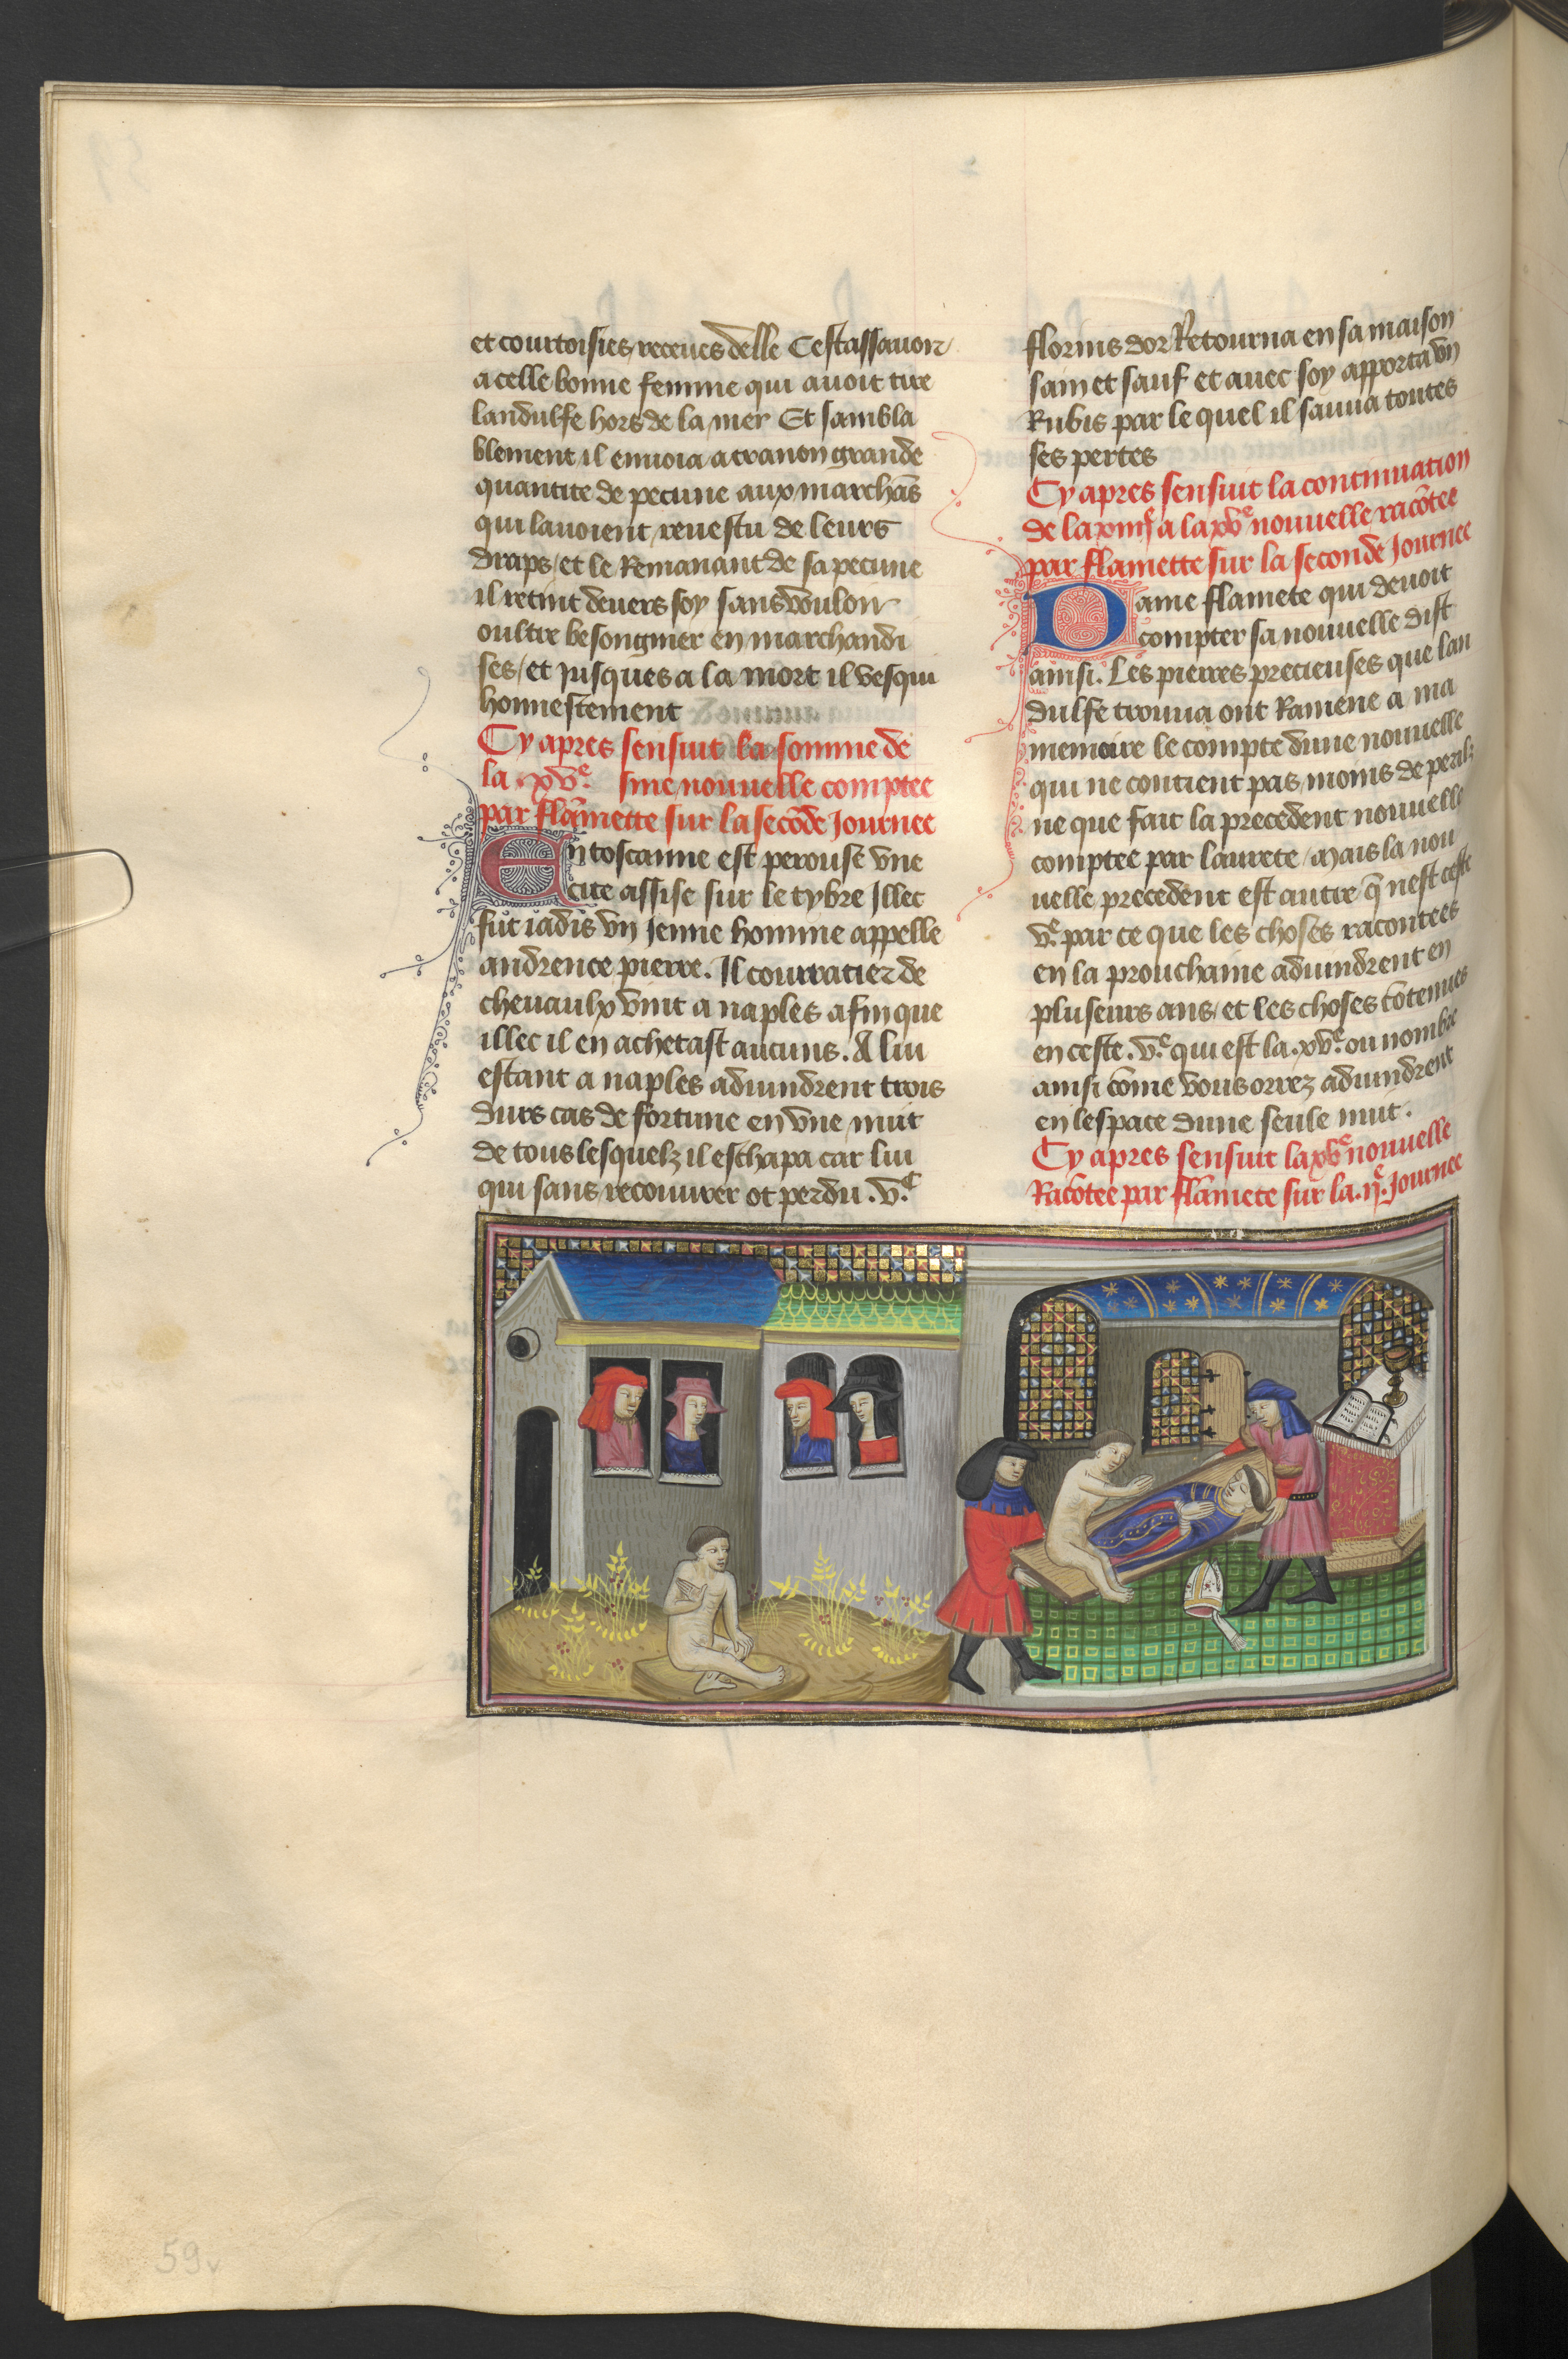 et courtoisies receues delle Cestassauoir
a celle bonne femme qui auoit tire
landulfe hors de la mer Et sambla
blement il enuoia a tranon grande
quantite de pecune aux marchãs
qui lauoient reuestu de leurs
draps / et le Remanant de sa pecune
il retint deuers soy sans vouloir
oultre besongnier en marchandi
ses / et jusques a la mort il vesqui
honnestement
Cy apres sensuit la somme de
la .xv.e sme nouuelle comptee
par flãmette sur la secõde Journee
En toscanne est perouse vne
cite assise sur le tybre Jllec
fut iadis vn jenne homme appelle
andrence pierre. Il courratier de
cheuaulx vint a naples afin que
illec il en achetast aucuns. A lui
estant a naples aduindrent trois
durs cas de fortune en vne nuit
de tous lesquelz il eschapa car lui
qui sans recouurer ot perdu .v.c
florins dor Retourna en sa maison
sain et sauf et auec soy apporta vn
Rubis par le quel il sauua toutes
ses pertes
Cy apres sensuit la continuation
de la xiiije a la xve nouuelle racõtee
par flamette sur la seconde Journee
Dame flamete qui deuoit
compter sa nouuelle dist
ainsi. Les pierres precieuses que lan
dulfe trouua ont Ramene a ma
memoire le compte dune nouuelle
qui ne contient pas moins de perilz
ne que fait la precedent nouuelle
comptee par laurete / Mais la nou
uelle precedent est autre q̃ nest ceste
v.e par ce que les choses racontees
en la prouchaine aduindrent en
pluseurs ans / et les choses cõtenues
en ceste .v.e qui est la .xv.e ou nombre
ainsi cõme vous orrez aduindrent
en lespace dune seule nuit.
Cy apres sensuit la xve nouuelle
Racõtee par flãmete sur la .ije. Journee
59v